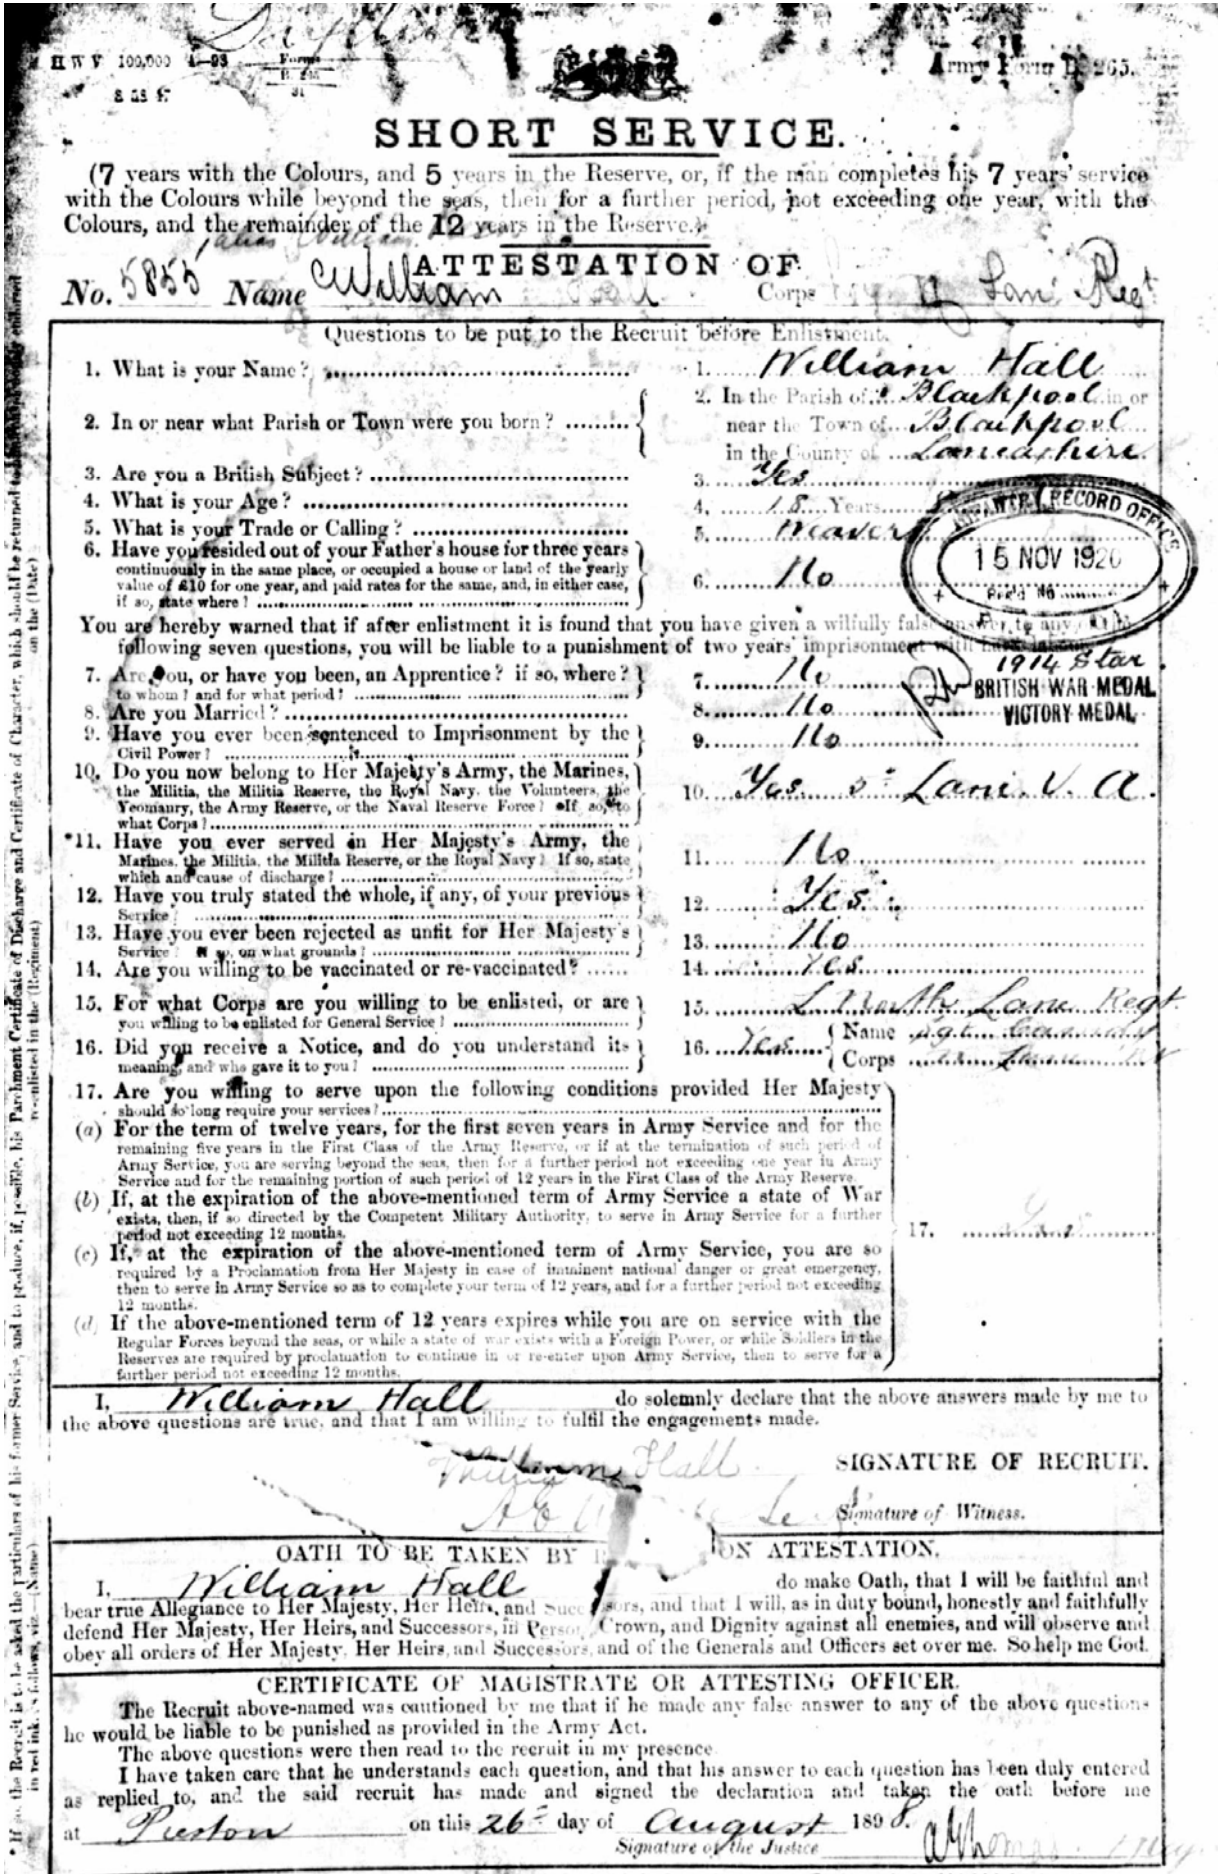 H W V 100,000 4—98 Forms
Army Form B. 265.
SHORT SERVICE.
(7 years with the Colours, and 5 years in the Reserve, or, if the man completes his 7 years' service
with the Colours while beyond the seas, then for a further period, not exceeding one year, with the
Colours, and the remainder of the 12 years in the Reserve.)
alias William
ATTESTATION OF
No. 5855 Name William Hall Corps N Lanc Regt
Questions to be put to the Recruit before Enlistment.
1. What is your Name? 1. William Hall
2. In or near what Parish or Town were you born? 2. In the Parish of Blackpool in or
near the Town of Blackpool
in the County of Lancashire
3. Are you a British Subject? 3. Yes
4. What is your Age? 4. 18 Years
5. What is your Trade or Calling? 5. Weaver
INFANTRY RECORD OFFICE
15 NOV 1920
6. Have you resided out of your Father's house for three years
continuously in the same place, or occupied a house or land of the yearly
value of £10 for one year, and paid rates for the same, and, in either case,
if so, state where? 6. No
You are hereby warned that if after enlistment it is found that you have given a wilfully false answer to any of the
following seven questions, you will be liable to a punishment of two years' imprisonment with hard labour.
1914 Star
BRITISH WAR MEDAL
VICTORY MEDAL
7. Are you, or have you been, an Apprentice? if so, where?
to whom? and for what period? 7. No
8. Are you Married? 8. No
9. Have you ever been sentenced to Imprisonment by the
Civil Power? 9. No
10. Do you now belong to Her Majesty's Army, the Marines,
the Militia, the Militia Reserve, the Royal Navy, the Volunteers, the
Yeomanry, the Army Reserve, or the Naval Reserve Force? If so, to
what Corps? 10. Yes 5th Lanc. V. A.
*11. Have you ever served in Her Majesty's Army, the
Marines, the Militia, the Militia Reserve, or the Royal Navy? If so, state
which and cause of discharge? 11. No
12. Have you truly stated the whole, if any, of your previous
Service? 12. Yes
13. Have you ever been rejected as unfit for Her Majesty's
Service? If so, on what grounds? 13. No
14. Are you willing to be vaccinated or re-vaccinated? 14. Yes
15. For what Corps are you willing to be enlisted, or are
you willing to be enlisted for General Service? 15. L North Lanc Regt
16. Did you receive a Notice, and do you understand its
meaning, and who gave it to you? 16. Yes Name Sgt
Corps
17. Are you willing to serve upon the following conditions provided Her Majesty
should so long require your services?
(a) For the term of twelve years, for the first seven years in Army Service and for the
remaining five years in the First Class of the Army Reserve, or if at the termination of such period of
Army Service, you are serving beyond the seas, then for a further period not exceeding one year in Army
Service and for the remaining portion of such period of 12 years in the First Class of the Army Reserve.
(b) If, at the expiration of the above-mentioned term of Army Service a state of War
exists, then, if so directed by the Competent Military Authority, to serve in Army Service for a further
period not exceeding 12 months.
17. Yes
(c) If, at the expiration of the above-mentioned term of Army Service, you are so
required by a Proclamation from Her Majesty in case of imminent national danger or great emergency,
then to serve in Army Service so as to complete your term of 12 years, and for a further period not exceeding
12 months.
(d) If the above-mentioned term of 12 years expires while you are on service with the
Regular Forces beyond the seas, or while a state of war exists with a Foreign Power, or while Soldiers in the
Reserves are required by proclamation to continue in or re-enter upon Army Service, then to serve for a
further period not exceeding 12 months.
I, William Hall do solemnly declare that the above answers made by me to
the above questions are true, and that I am willing to fulfil the engagements made.
William Hall SIGNATURE OF RECRUIT.
Signature of Witness.
OATH TO BE TAKEN BY ON ATTESTATION.
I, William Hall do make Oath, that I will be faithful and
bear true Allegiance to Her Majesty, Her Heirs, and Successors, and that I will, as in duty bound, honestly and faithfully
defend Her Majesty, Her Heirs, and Successors, in Person, Crown, and Dignity against all enemies, and will observe and
obey all orders of Her Majesty, Her Heirs, and Successors, and of the Generals and Officers set over me. So help me God.
CERTIFICATE OF MAGISTRATE OR ATTESTING OFFICER.
The Recruit above-named was cautioned by me that if he made any false answer to any of the above questions
he would be liable to be punished as provided in the Army Act.
The above questions were then read to the recruit in my presence.
I have taken care that he understands each question, and that his answer to each question has been duly entered
as replied to, and the said recruit has made and signed the declaration and taken the oath before me
at Preston on this 26th day of August 1898.
Signature of the Justice
* If so, the Recruit is to be asked the particulars of his former Service, and to produce, if possible, his Parchment Certificate of Discharge and Certificate of Character, which should be returned to him
in red ink, as follows, viz.—(Name) re-enlisted in the (Regiment) on the (Date)